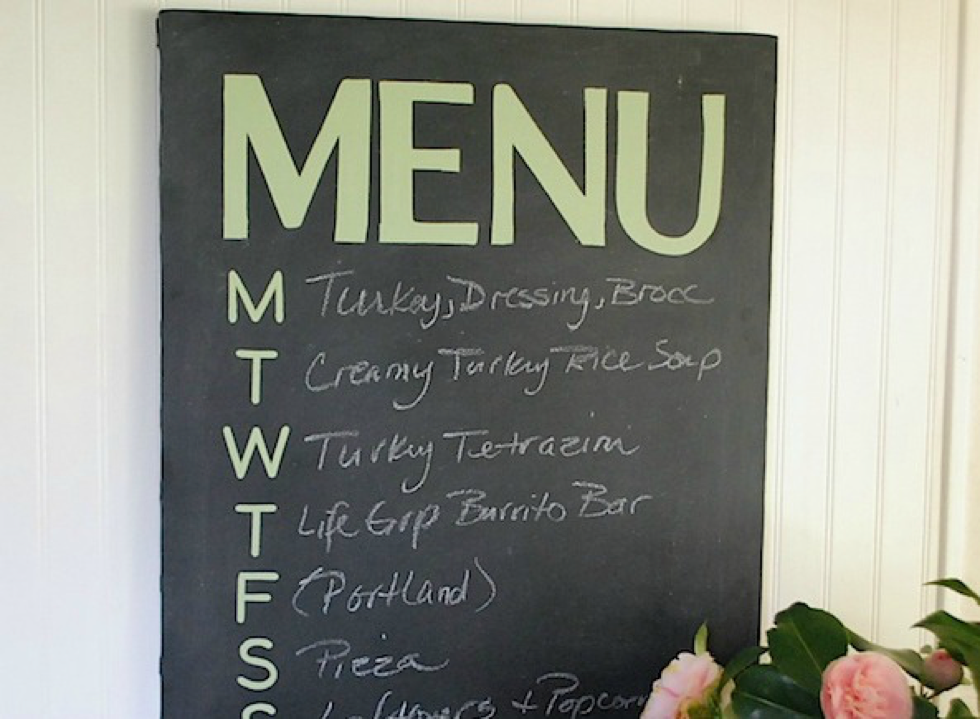 MENU
M Turkey, Dressing, Brocc
T Creamy Turkey Rice Soup
W Turkey Tetrazini
T Life Grp Burrito Bar
F (Portland)
S Pizza
S Leftovers + Popcorn